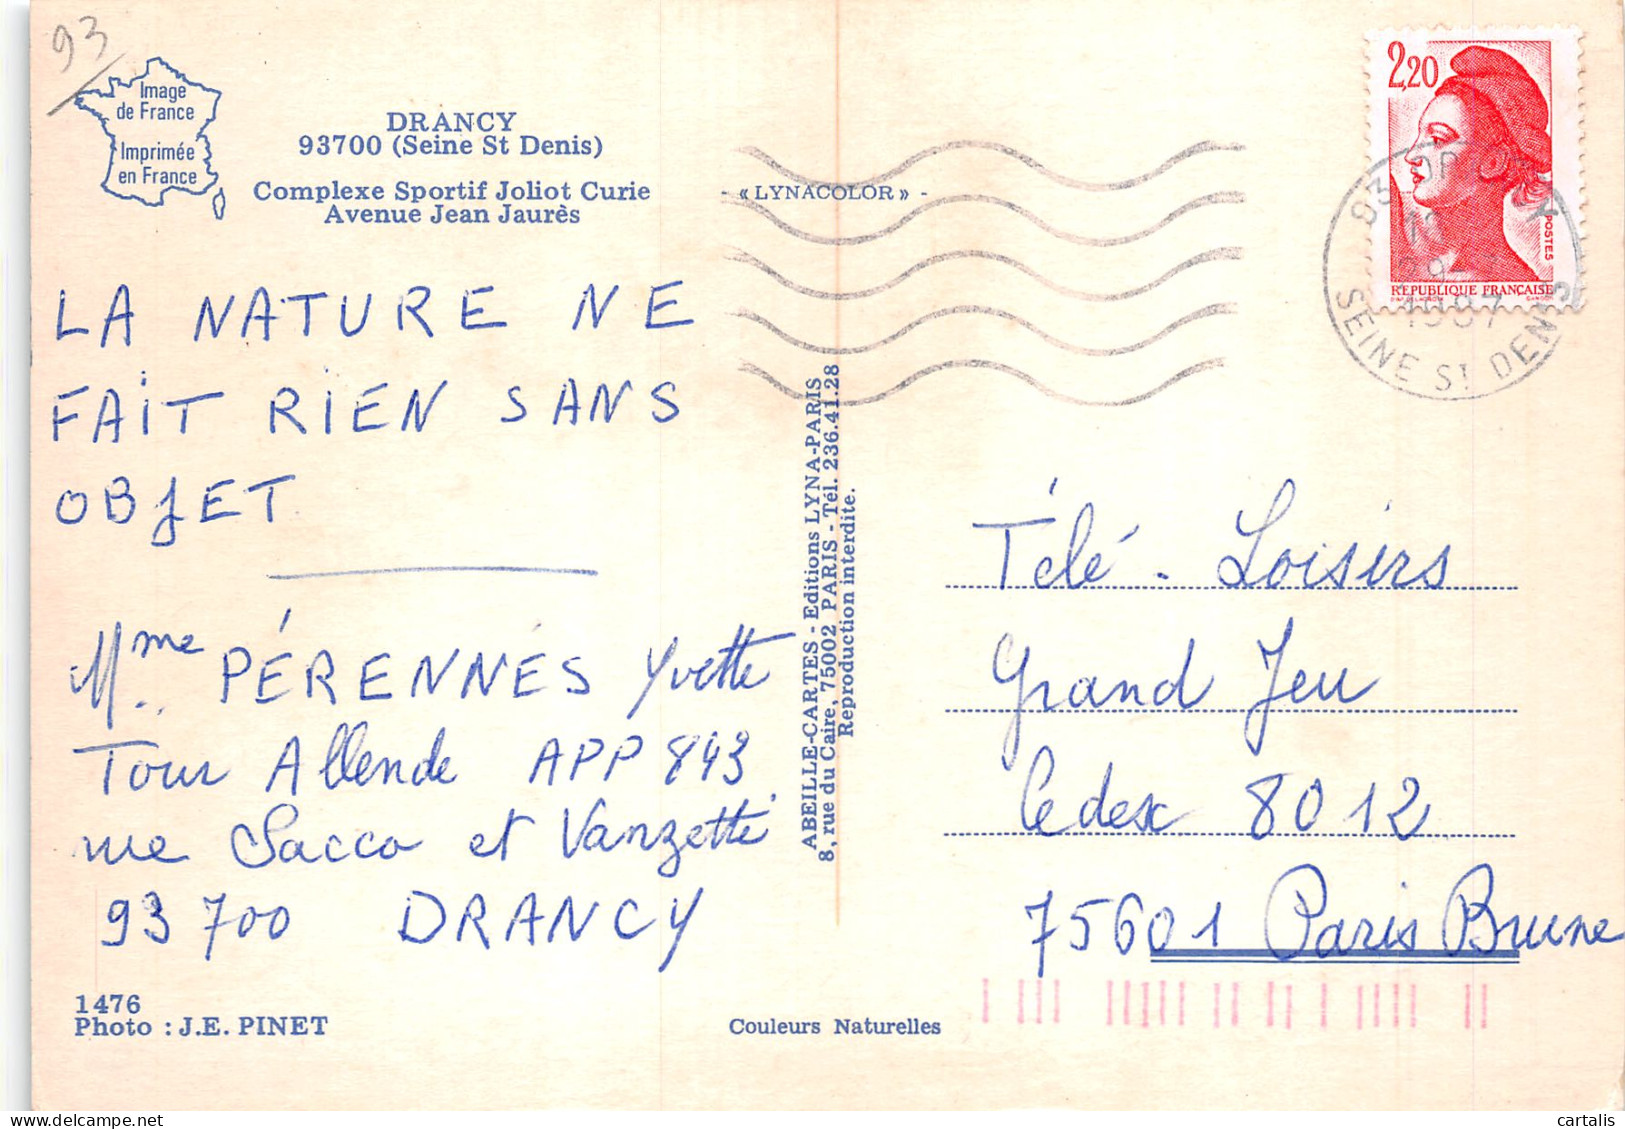 93
Image
de France
Imprimée
en France
DRANCY
93700 (Seine St Denis)
Complexe Sportif Joliot Curie
Avenue Jean Jaurès
- « LYNACOLOR » -
2,20
POSTES
RÉPUBLIQUE FRANÇAISE
1987
SEINE ST DENIS
LA NATURE NE
FAIT RIEN SANS
OBJET
Mme PÉRENNÉS Yvette
Tour Allende APP 843
rue Sacco et Vanzetti
93 700 DRANCY
1476
Photo : J.E. PINET
ABEILLE-CARTES - Editions LYNA-PARIS
8, rue du Caire, 75002 PARIS - Tél. 236.41.28
Reproduction interdite.
Couleurs Naturelles
Télé - Loisirs
Grand Jeu
Cedex 8012
75601 Paris Brune
cartalis